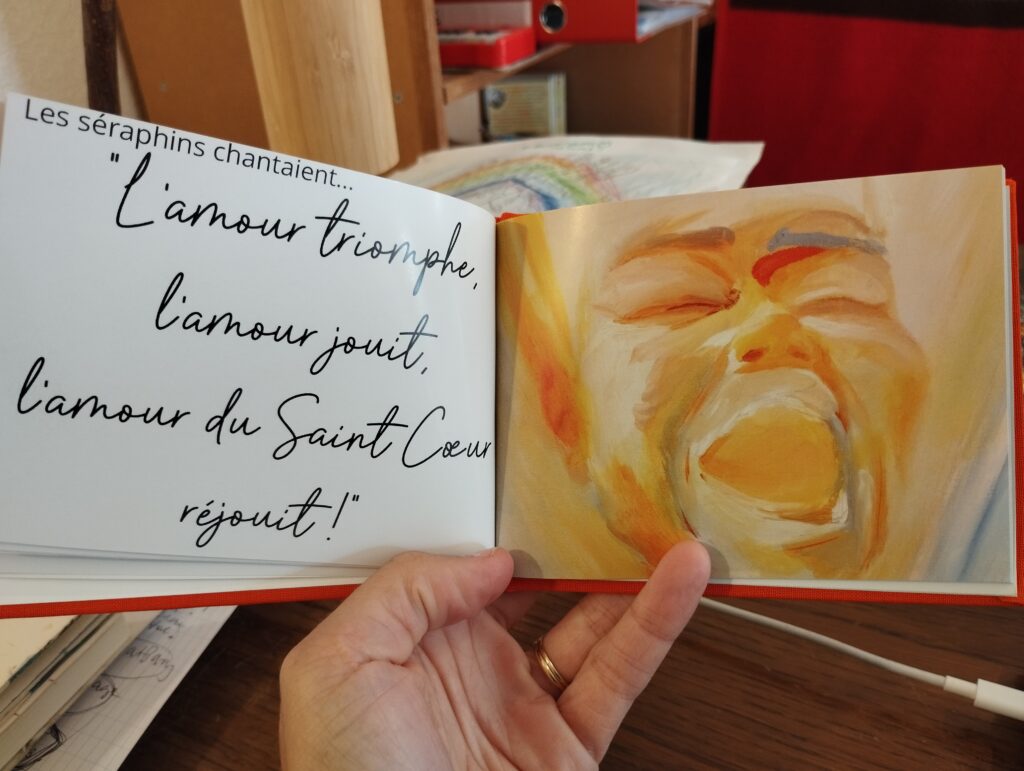 Les séraphins chantaient...
"L'amour triomphe,
l'amour jouit,
l'amour du Saint Cœur
réjouit !"